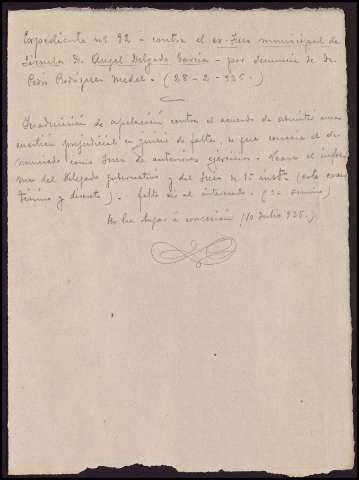 Expediente nº 92 - contra el ex-Juez municipal de
Siruela D. Angel Delgado García - por denuncia de D.
Pedro Rodríguez Medel. (28-2-925.)
Inadmisión de apelación contra el acuerdo de
cuestión prejudicial en juicio de faltas, de que conocía el de-
nunciado como Juez de anteriores ejercicios. Vease el infor-
me del Delegado gubernativo y del Juez de 1ª instª (este
y discreto). falta el
No ha lugar á corrección (10 Julio 925.).